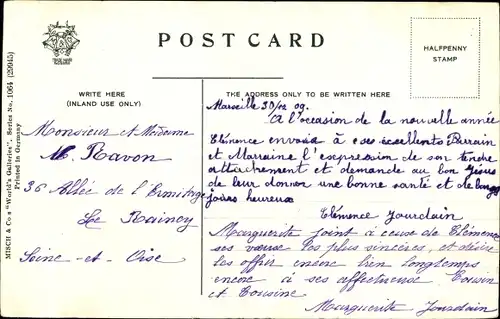 POST CARD
HALFPENNY
STAMP
WRITE HERE
(INLAND USE ONLY)
THE ADDRESS ONLY TO BE WRITTEN HERE
MISCH & Co's "World's Galleries", Series No. 1064 (20945)
Printed in Germany
Monsieur et Madame
M. Ravon
36 Allée de l'Ermitage
Le Raincy
Seine-et-Oise
Marseille 30/12 09.
A l'occasion de la nouvelle année
Clémence envoie à ses excellents Parrain
et Marraine l'expression de son tendre
attachement et demande au bon Jésus
de leur donner une bonne santé et de longs
jours heureux
Clémence Jourdain
Marguerite joint à ceux de Clémence
ses vœux les plus sincères, et désire
les offrir encore bien longtemps
encore à ses affectueux Cousin
et Cousine
Marguerite Jourdain